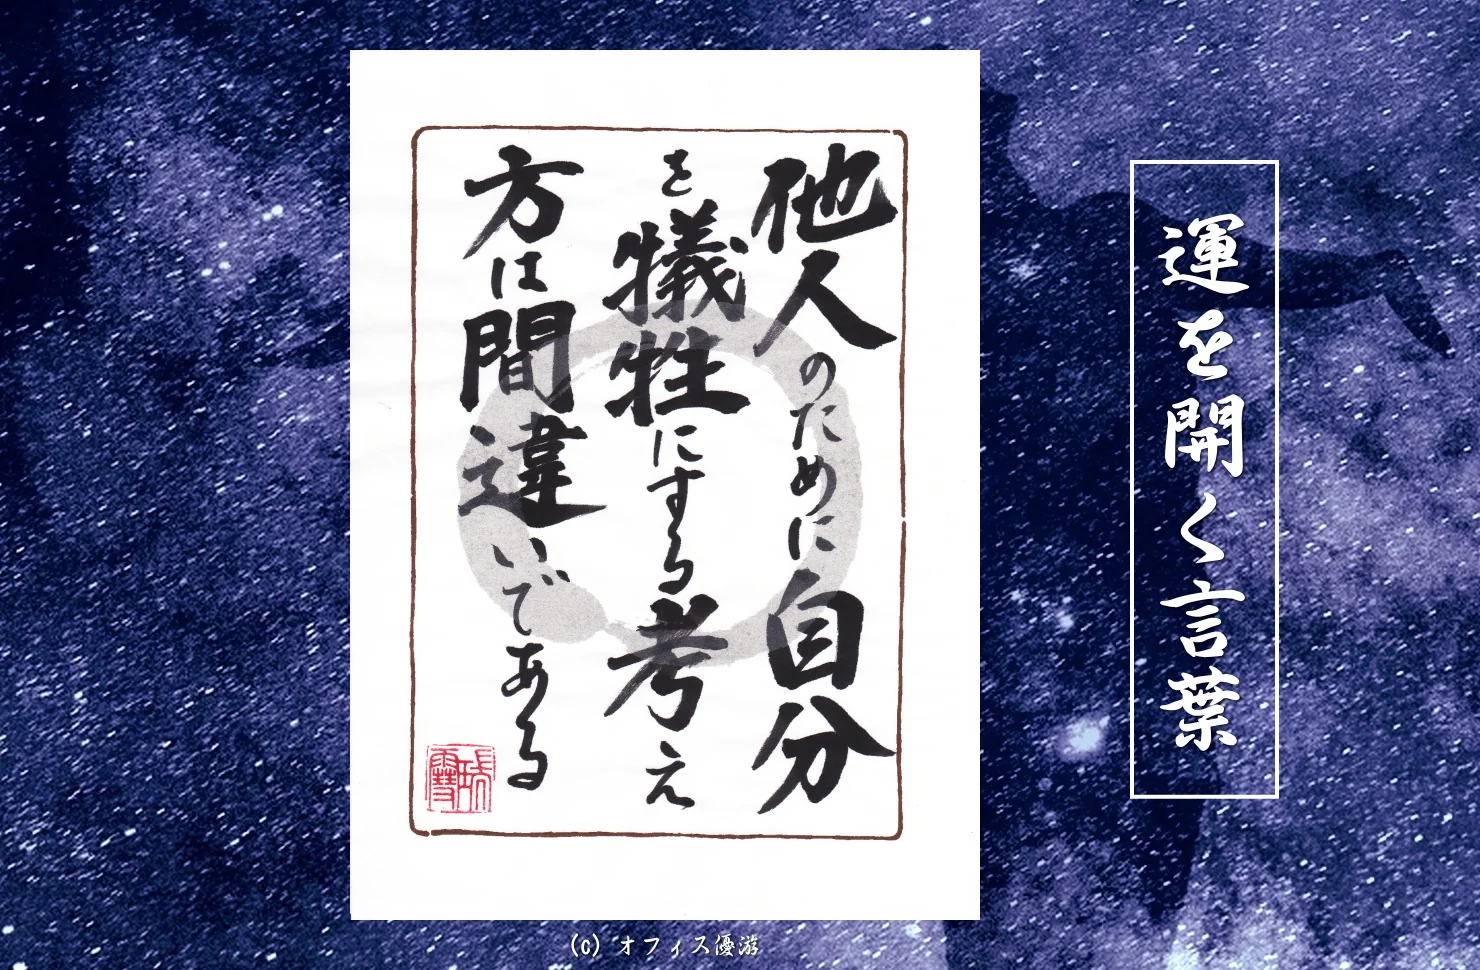 運を開く言葉
他人のために自分
を犠牲にする考え
方は間違いである
(c) オフィス優游